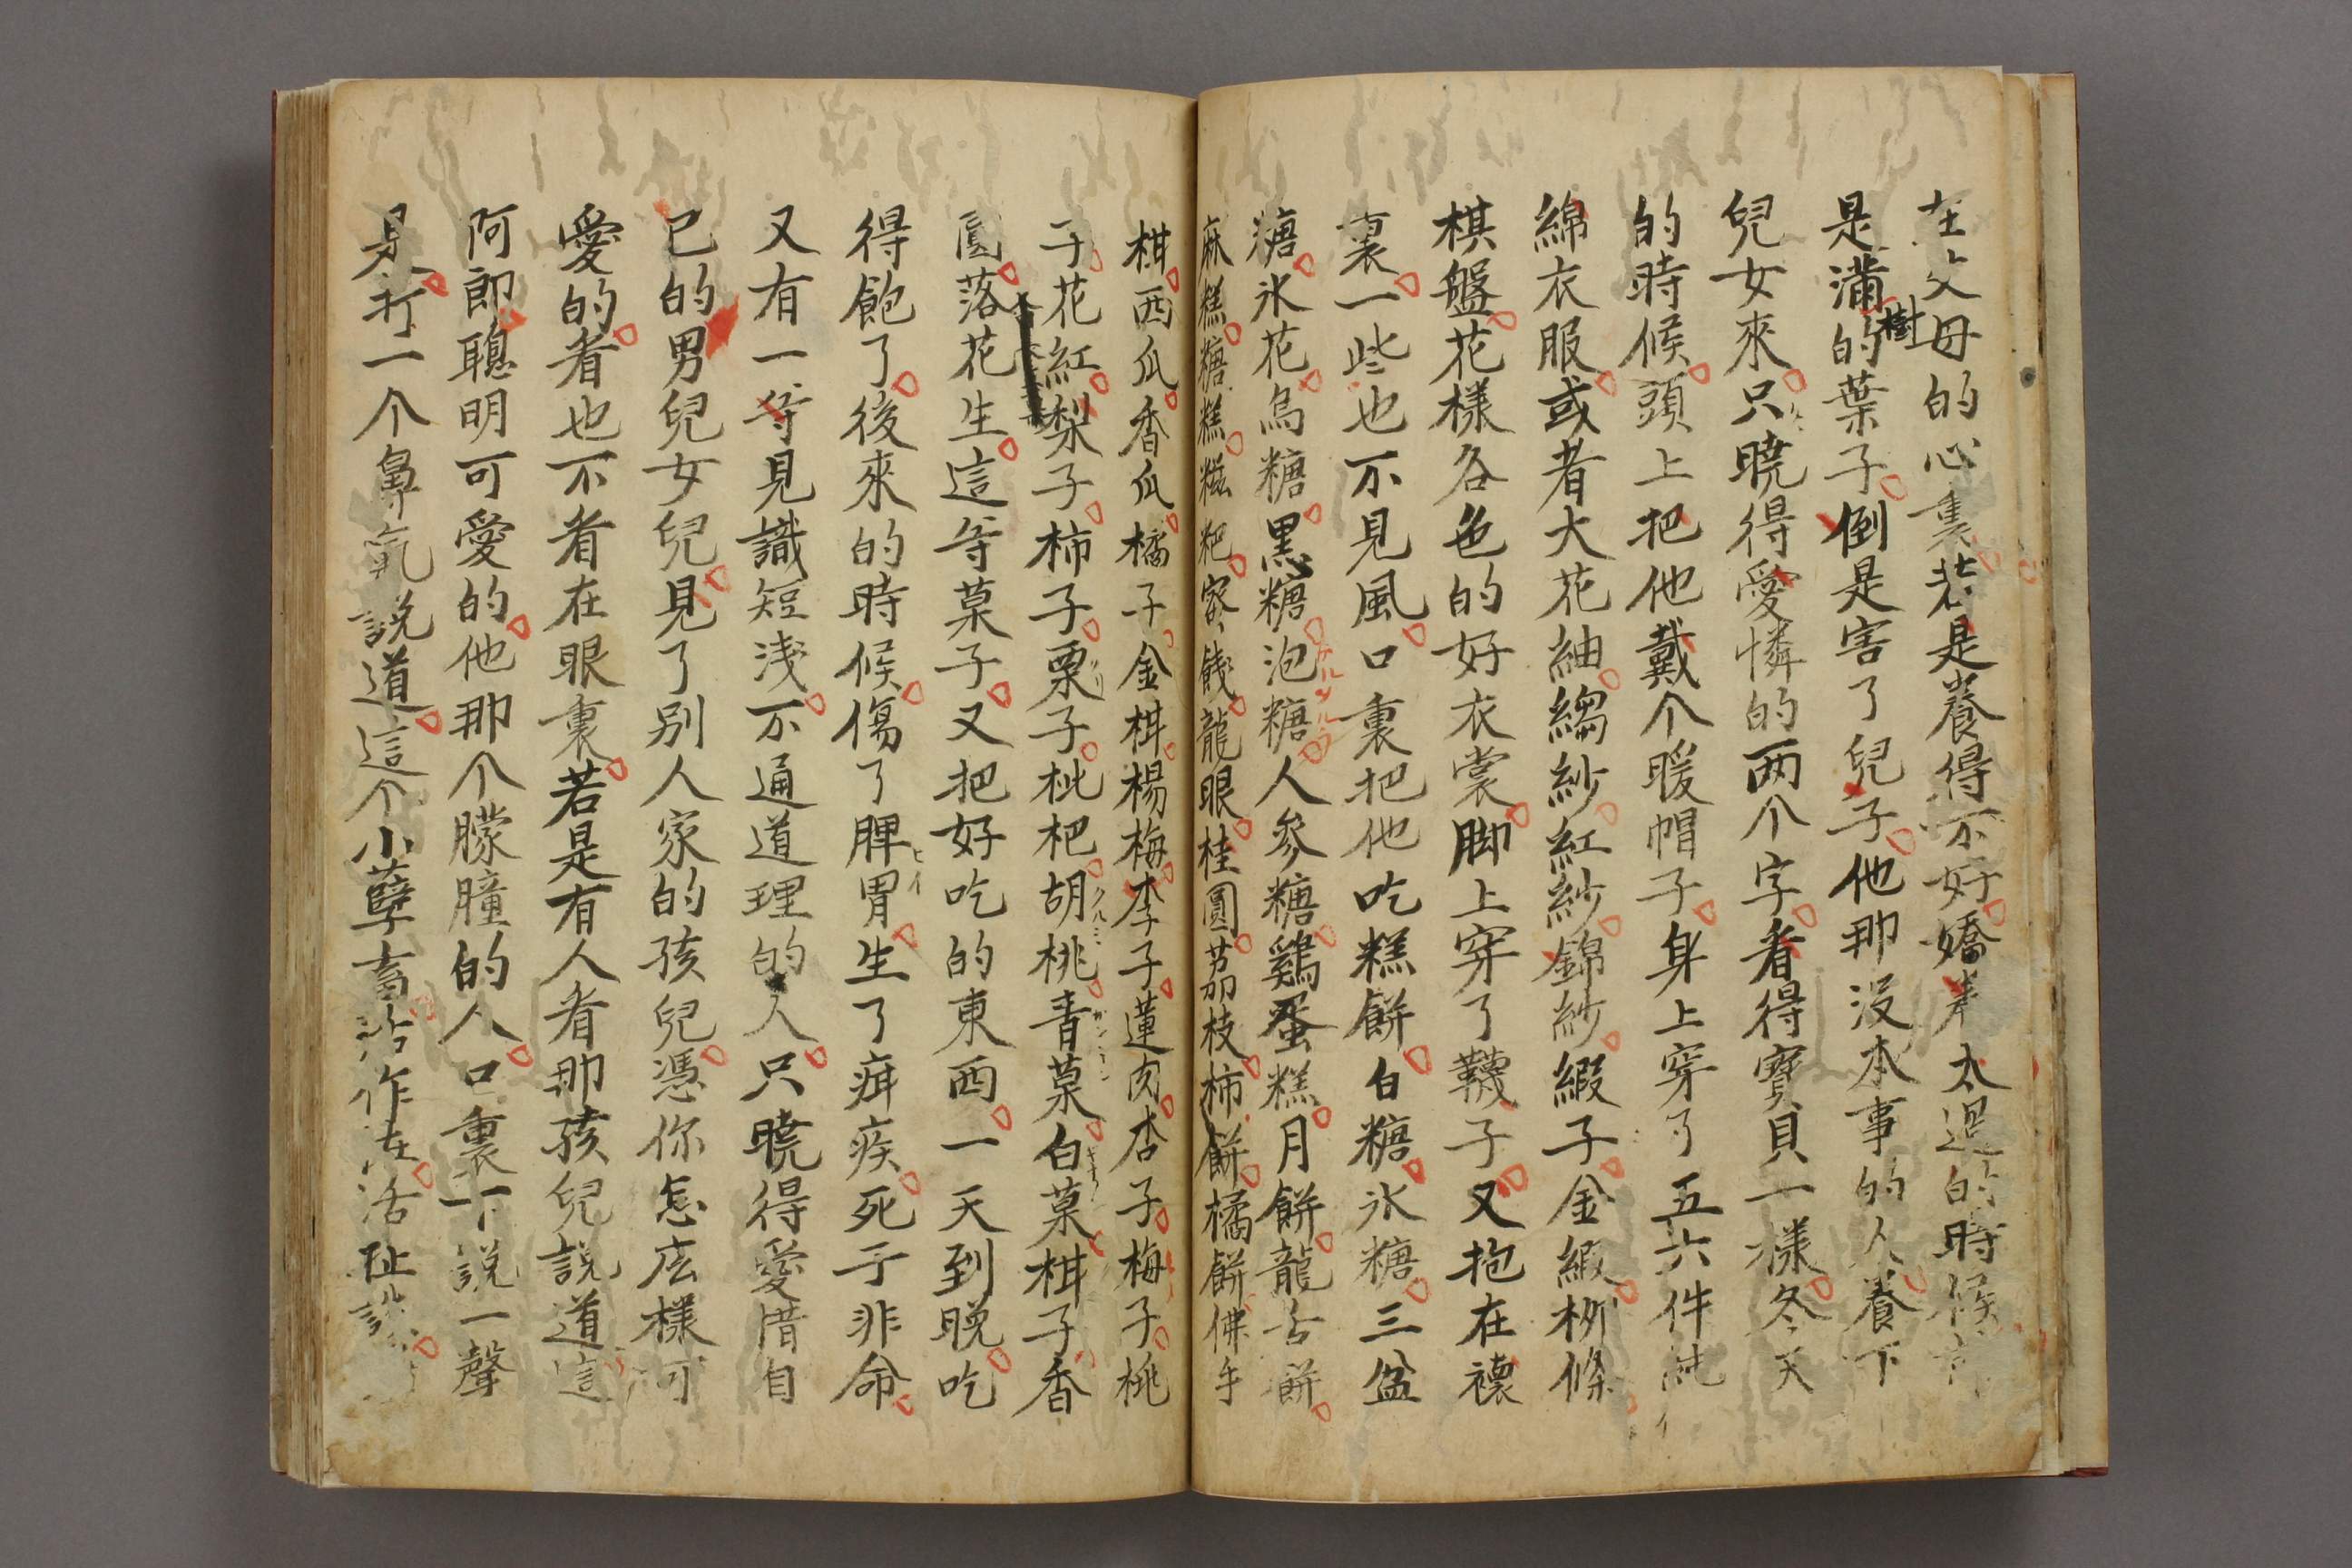 在父母的心裏若是養得不好嬌養太過的時候
是滿樹的葉子倒是害了兒子他那没本事的人養下
兒女來只曉得愛憐的两个字看得寳貝一樣冬天
的時候頭上把他戴个暖帽子身上穿了五六件純
綿衣服或者大花紬縐紗紅紗錦紗緞子金緞柳條
棋盤花樣各色的好衣裳脚上穿了韈子又抱在懷
裏一些也不見風口裏把他吃糕餅白糖氷糖三盆
糖氷花烏糖黒糖泡糖カルメルラ人參糖鷄蛋糕月餅龍舌餅
麻糕糖糕糍粑蜜餞龍眼桂圓茘枝柿餅橘餅佛手
柑西瓜香瓜橘子金柑楊梅李子蓮肉杏子梅子桃
子花紅梨子柿子栗子枇杷胡桃クルミ青菓カンラン白菓柑子香
圓落花生這等菓子又把好吃的東西一天到晚吃
得飽了後來的時候傷了脾胃ヒイ生了疳疾死于非命
又有一等見識短淺不通道理的人只曉得愛惜自
已的男兒女兒見了別人家的孩兒憑你怎広樣可
愛的看也不看在眼裏若是有人看那孩兒説道這
阿郎聰明可愛的他那个朦朣的人口裏不説一聲
是打一个鼻氣説道這个小孽畜